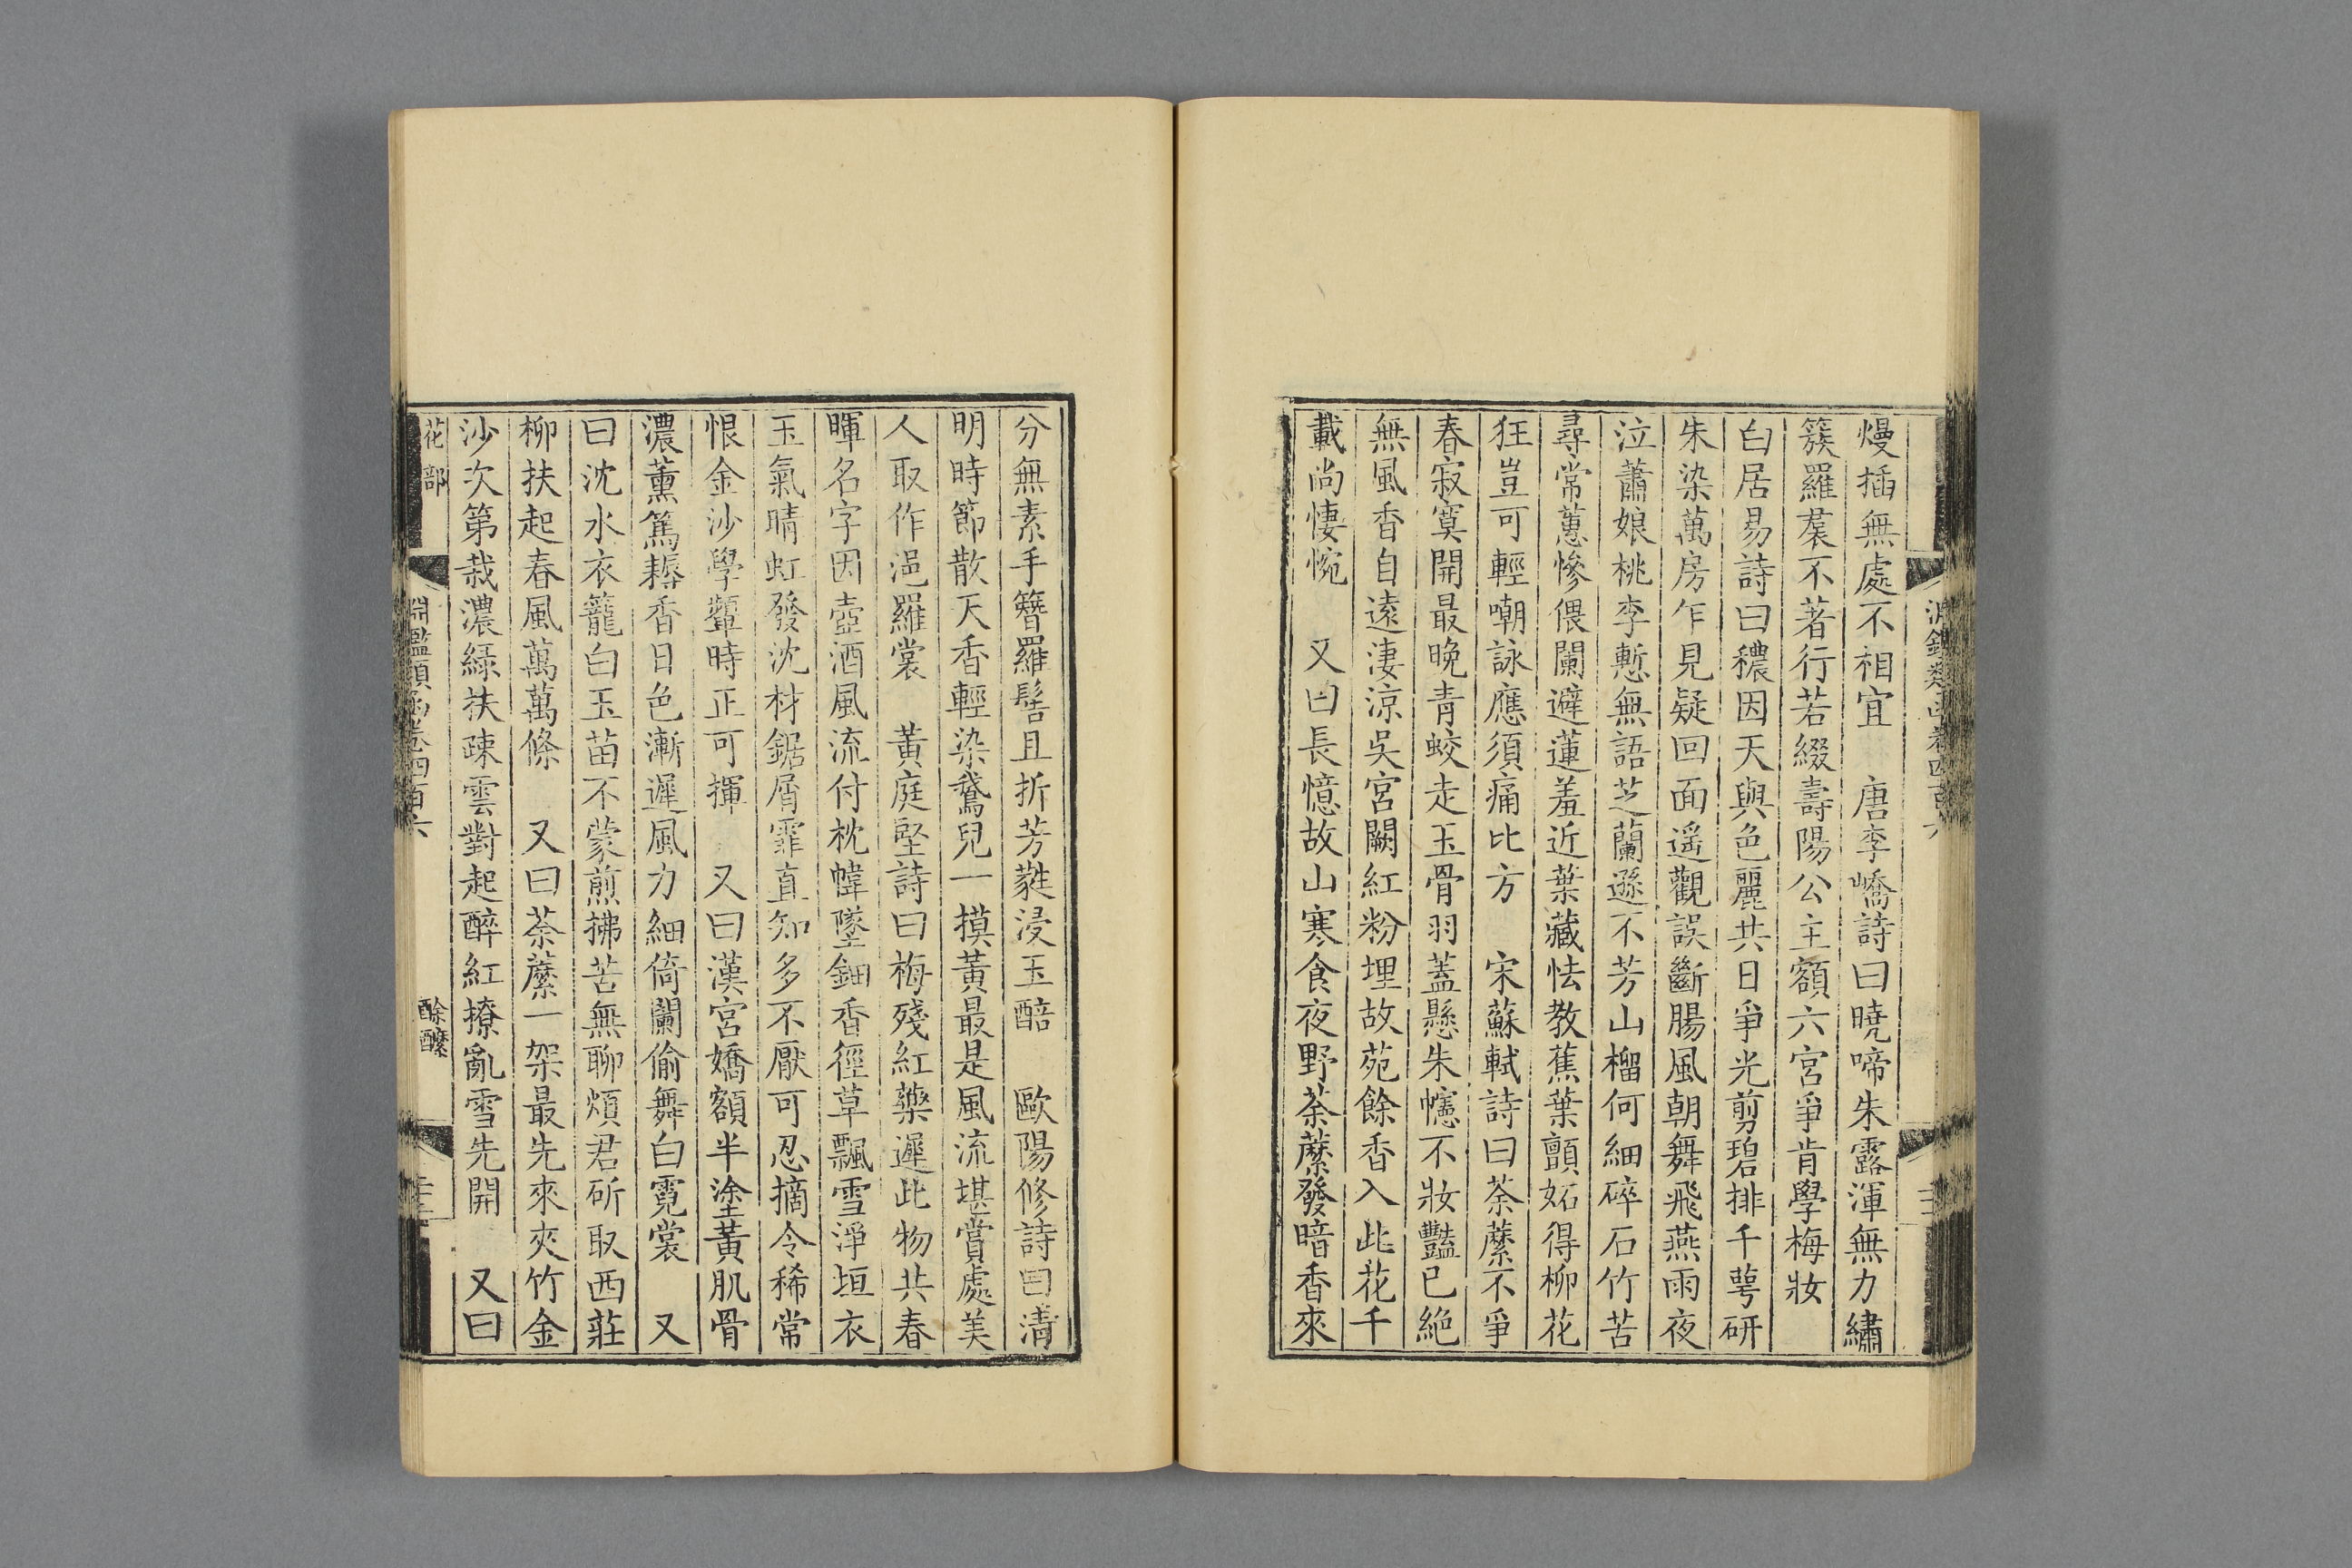 淵鑑類函卷四百六
熳插無處不相宜　唐李嶠詩曰曉啼朱露渾無力繡
簇羅裠不著行若綴壽陽公主額六宮爭肯學梅妝
白居易詩曰穠因天與色麗共日爭光剪碧排千萼研
朱染萬房乍見疑回面遙觀誤斷腸風朝舞飛燕雨夜
泣蕭娘桃李慙無語芝蘭遜不芳山榴何細碎石竹苦
尋常蕙慘偎闌避蓮羞近葉藏怯教蕉葉顫妬得柳花
狂豈可輕嘲詠應須痛比方　宋蘇軾詩曰荼蘼不爭
春寂寞開最晚青蛟走玉骨羽蓋懸朱幰不妝豔已絕
無風香自遠淒涼吳宮闕紅粉埋故苑餘香入此花千
載尚悽惋　又曰長憶故山寒食夜野荼蘼發暗香來
分無素手簪羅髻且折芳蕤浸玉醅　歐陽修詩曰清
明時節散天香輕染鵞兒一摸黃最是風流堪賞處美
人取作浥羅裳　黃庭堅詩曰梅殘紅藥遲此物共春
暉名字因壺酒風流付枕幃墜鈿香徑草飄雪淨垣衣
玉氣晴虹發沈材鋸屑霏直知多不厭可忍摘令稀常
恨金沙學顰時正可揮　又曰漢宮嬌額半塗黃肌骨
濃薰篤耨香日色漸遲風力細倚闌偷舞白霓裳　又
曰沈水衣籠白玉苗不蒙煎拂苦無聊煩君斫取西莊
柳扶起春風萬萬條　又曰荼蘼一架最先來夾竹金
沙次第栽濃綠扶疎雲對起醉紅撩亂雪先開　又曰
花部
淵鑑類函卷四百六
酴醾